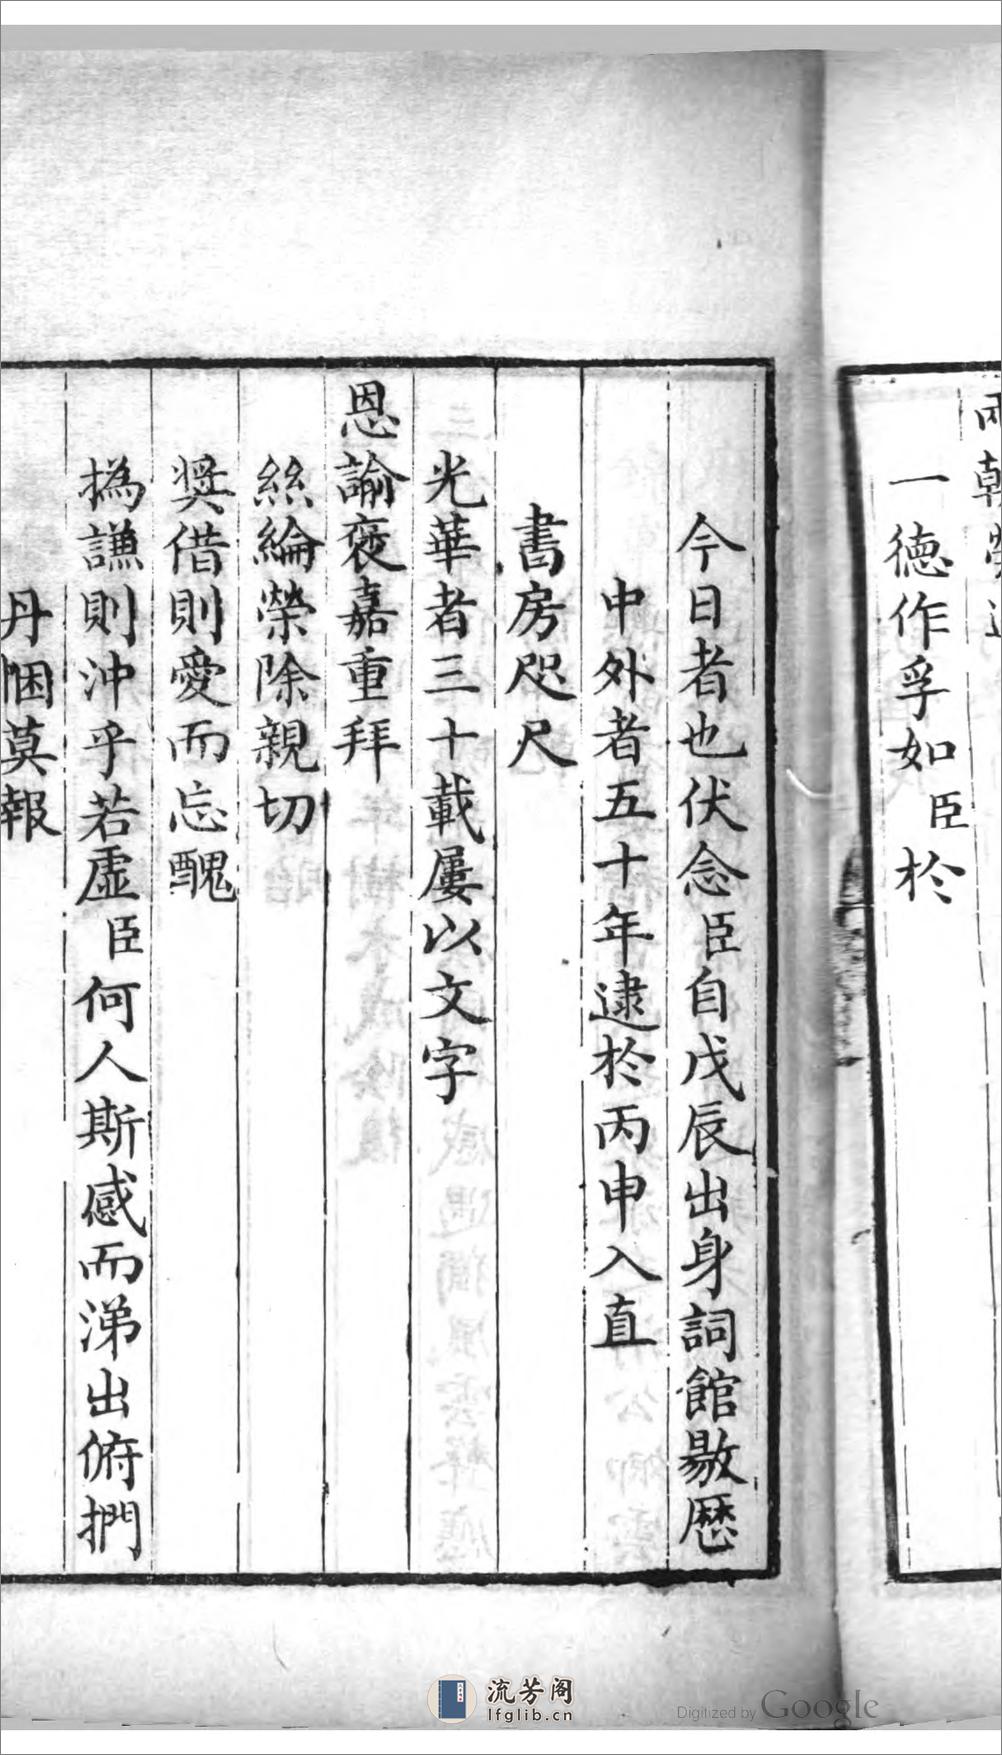 一德作孚如臣於
今日者也伏念臣自戊辰出身詞館敭歷
中外者五十年逮於丙申入直
書房咫尺
光華者三十載屢以文字
恩諭褒嘉重拜
絲綸榮除親切
奬借則愛而忘醜
撝謙則沖乎若虛臣何人斯感而涕出俯捫
丹悃莫報
流芳阁
lfglib.cn
Digitized by Google